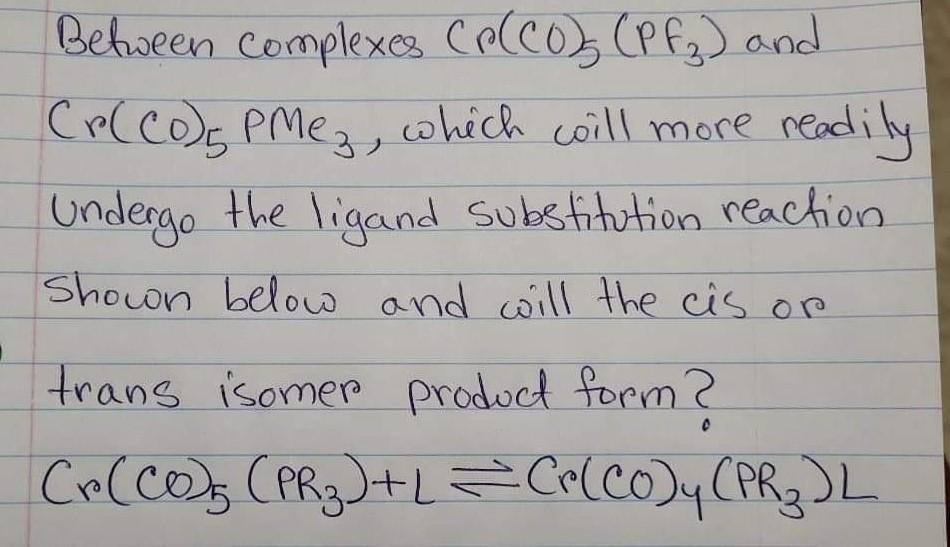 Between complexes Cr(CO)5 (PF3) and
Cr(CO)5 PMe3, which will more readily
undergo the ligand substitution reaction
shown below and will the cis or
trans isomer product form?
Cr(CO)5 (PR3)+L ⇌ Cr(CO)4 (PR3)L